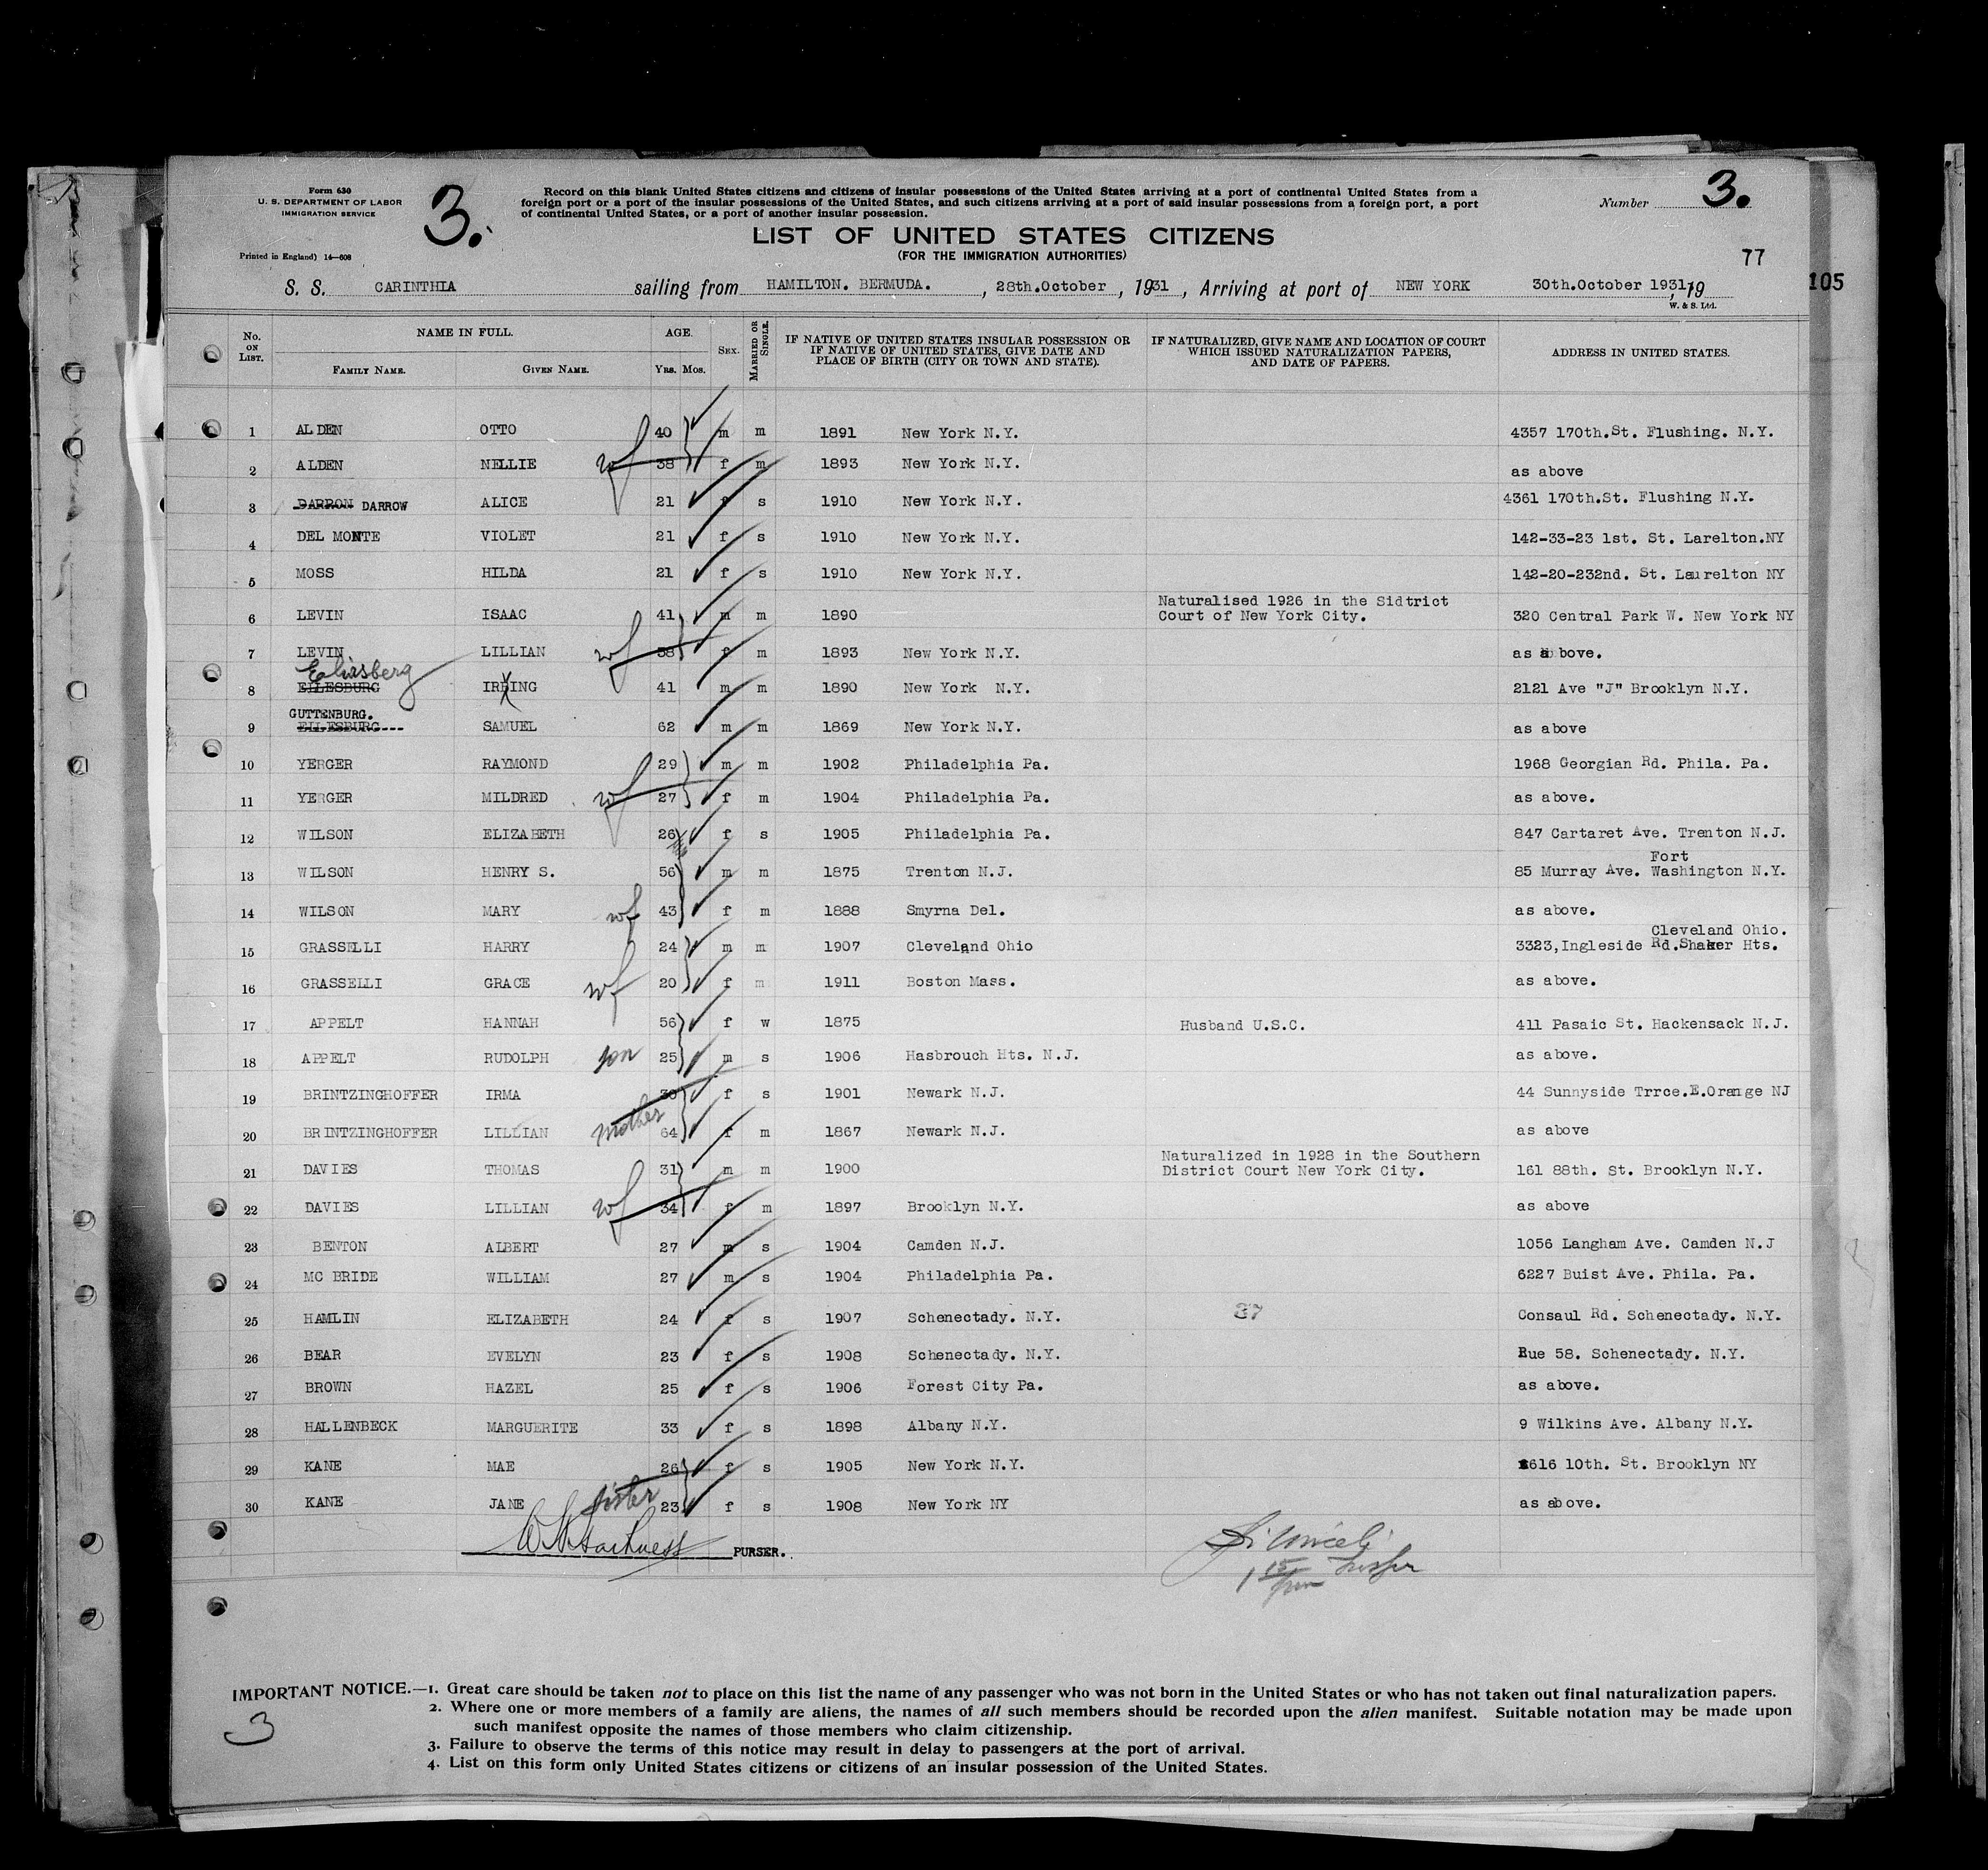 Form 630
U. S. DEPARTMENT OF LABOR
IMMIGRATION SERVICE
3.
Record on this blank United States citizens and citizens of insular possessions of the United States arriving at a port of continental United States from a
foreign port or a port of the insular possessions of the United States, and such citizens arriving at a port of said insular possessions from a foreign port, a port
of continental United States, or a port of another insular possession.
Number 3.
LIST OF UNITED STATES CITIZENS
(FOR THE IMMIGRATION AUTHORITIES)
Printed in England) 14—608
77
S. S. CARINTHIA sailing from HAMILTON. BERMUDA. , 28th.October , 1931 , Arriving at port of NEW YORK 30th.October 1931, 19
105
W. & S. Ltd.
No. ON LIST. NAME IN FULL. FAMILY NAME. GIVEN NAME. AGE. YRS. MOS. SEX. MARRIED OR SINGLE. IF NATIVE OF UNITED STATES INSULAR POSSESSION OR IF NATIVE OF UNITED STATES, GIVE DATE AND PLACE OF BIRTH (CITY OR TOWN AND STATE). IF NATURALIZED, GIVE NAME AND LOCATION OF COURT WHICH ISSUED NATURALIZATION PAPERS, AND DATE OF PAPERS. ADDRESS IN UNITED STATES.
1 ALDEN OTTO 40 m m 1891 New York N.Y. 4357 170th.St. Flushing. N.Y.
2 ALDEN NELLIE wf 38 f m 1893 New York N.Y. as above
3 DARRON DARROW ALICE 21 f s 1910 New York N.Y. 4361 170th.St. Flushing N.Y.
4 DEL MONTE VIOLET 21 f s 1910 New York N.Y. 142-33-23 1st. St. Larelton.NY
5 MOSS HILDA 21 f s 1910 New York N.Y. 142-20-232nd. St. Laurelton NY
6 LEVIN ISAAC 41 m m 1890 Naturalised 1926 in the Sidtrict Court of New York City. 320 Central Park W. New York NY
7 LEVIN LILLIAN wf 38 f m 1893 New York N.Y. as above.
Eliasberg
8 EILESBURG IRVING 41 m m 1890 New York N.Y. 2121 Ave "J" Brooklyn N.Y.
GUTTENBURG.
9 EILESBURG--- SAMUEL 62 m m 1869 New York N.Y. as above
10 YERGER RAYMOND 29 m m 1902 Philadelphia Pa. 1968 Georgian Rd. Phila. Pa.
11 YERGER MILDRED wf 27 f m 1904 Philadelphia Pa. as above.
12 WILSON ELIZABETH 26 f s 1905 Philadelphia Pa. 847 Cartaret Ave. Trenton N.J.
13 WILSON HENRY S. 56 m m 1875 Trenton N.J. 85 Murray Ave. Fort Washington N.Y.
14 WILSON MARY wf 43 f m 1888 Smyrna Del. as above.
15 GRASSELLI HARRY 24 m m 1907 Cleveland Ohio 3323,Ingleside Rd.Shaker Hts. Cleveland Ohio.
16 GRASSELLI GRACE wf 20 f m 1911 Boston Mass. as above.
17 APPELT HANNAH 56 f w 1875 Husband U.S.C. 411 Pasaic St. Hackensack N.J.
18 APPELT RUDOLPH son 25 m s 1906 Hasbrouch Hts. N.J. as above.
19 BRINTZINGHOFFER IRMA 30 f s 1901 Newark N.J. 44 Sunnyside Trrce.E.Orange NJ
20 BRINTZINGHOFFER LILLIAN mother 64 f m 1867 Newark N.J. as above
21 DAVIES THOMAS 31 m m 1900 Naturalized in 1928 in the Southern District Court New York City. 161 88th. St. Brooklyn N.Y.
22 DAVIES LILLIAN wf 34 f m 1897 Brooklyn N.Y. as above
23 BENTON ALBERT 27 m s 1904 Camden N.J. 1056 Langham Ave. Camden N.J
24 MC BRIDE WILLIAM 27 m s 1904 Philadelphia Pa. 6227 Buist Ave. Phila. Pa.
25 HAMLIN ELIZABETH 24 f s 1907 Schenectady. N.Y. 37 Consaul Rd. Schenectady. N.Y.
26 BEAR EVELYN 23 f s 1908 Schenectady. N.Y. Rue 58. Schenectady. N.Y.
27 BROWN HAZEL 25 f s 1906 Forest City Pa. as above.
28 HALLENBECK MARGUERITE 33 f s 1898 Albany N.Y. 9 Wilkins Ave. Albany N.Y.
29 KANE MAE 26 f s 1905 New York N.Y. 1616 10th. St. Brooklyn NY
30 KANE JANE sister 23 f s 1908 New York NY as above.
PURSER.
1 15/pm
IMPORTANT NOTICE.—1. Great care should be taken not to place on this list the name of any passenger who was not born in the United States or who has not taken out final naturalization papers.
2. Where one or more members of a family are aliens, the names of all such members should be recorded upon the alien manifest. Suitable notation may be made upon
such manifest opposite the names of those members who claim citizenship.
3. Failure to observe the terms of this notice may result in delay to passengers at the port of arrival.
4. List on this form only United States citizens or citizens of an insular possession of the United States.
3